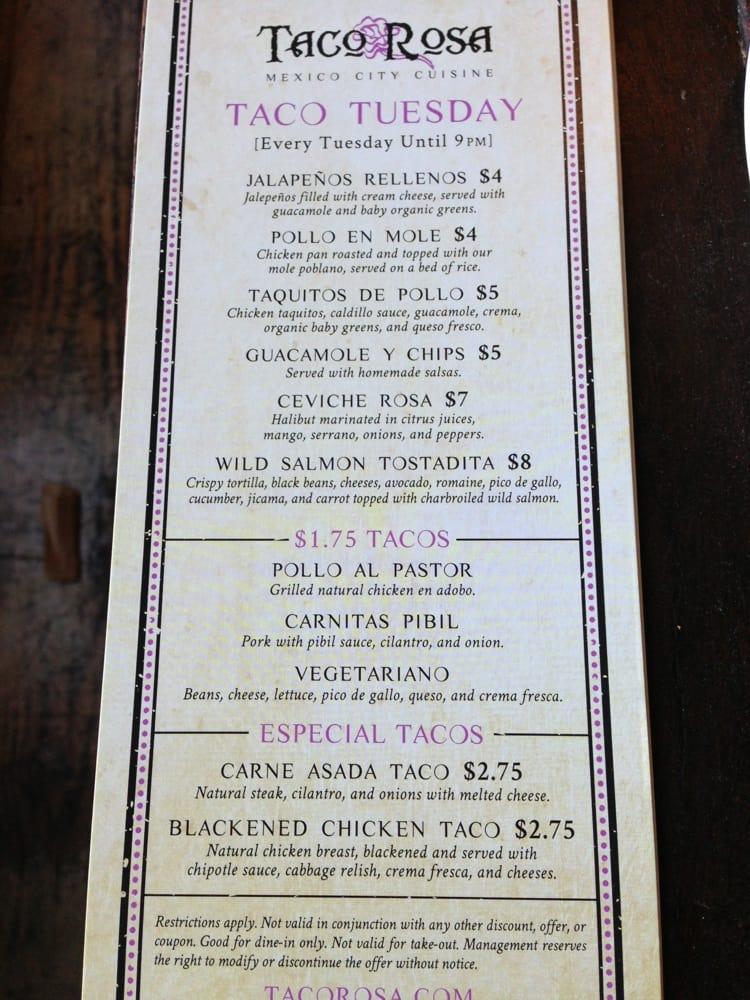 TACO ROSA
MEXICO CITY CUISINE
TACO TUESDAY
[Every Tuesday Until 9PM]
JALAPEÑOS RELLENOS $4
Jalepeños filled with cream cheese, served with
guacamole and baby organic greens.
POLLO EN MOLE $4
Chicken pan roasted and topped with our
mole poblano, served on a bed of rice.
TAQUITOS DE POLLO $5
Chicken taquitos, caldillo sauce, guacamole, crema,
organic baby greens, and queso fresco.
GUACAMOLE Y CHIPS $5
Served with homemade salsas.
CEVICHE ROSA $7
Halibut marinated in citrus juices,
mango, serrano, onions, and peppers.
WILD SALMON TOSTADITA $8
Crispy tortilla, black beans, cheeses, avocado, romaine, pico de gallo,
cucumber, jicama, and carrot topped with charbroiled wild salmon.
$1.75 TACOS
POLLO AL PASTOR
Grilled natural chicken en adobo.
CARNITAS PIBIL
Pork with pibil sauce, cilantro, and onion.
VEGETARIANO
Beans, cheese, lettuce, pico de gallo, queso, and crema fresca.
ESPECIAL TACOS
CARNE ASADA TACO $2.75
Natural steak, cilantro, and onions with melted cheese.
BLACKENED CHICKEN TACO $2.75
Natural chicken breast, blackened and served with
chipotle sauce, cabbage relish, crema fresca, and cheeses.
Restrictions apply. Not valid in conjunction with any other discount, offer, or
coupon. Good for dine-in only. Not valid for take-out. Management reserves
the right to modify or discontinue the offer without notice.
TACOROSA.COM